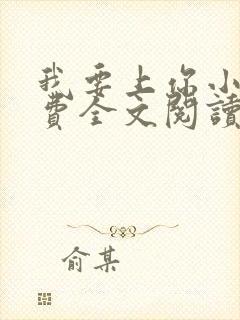 我要上你小
費全文閱讀
俞某